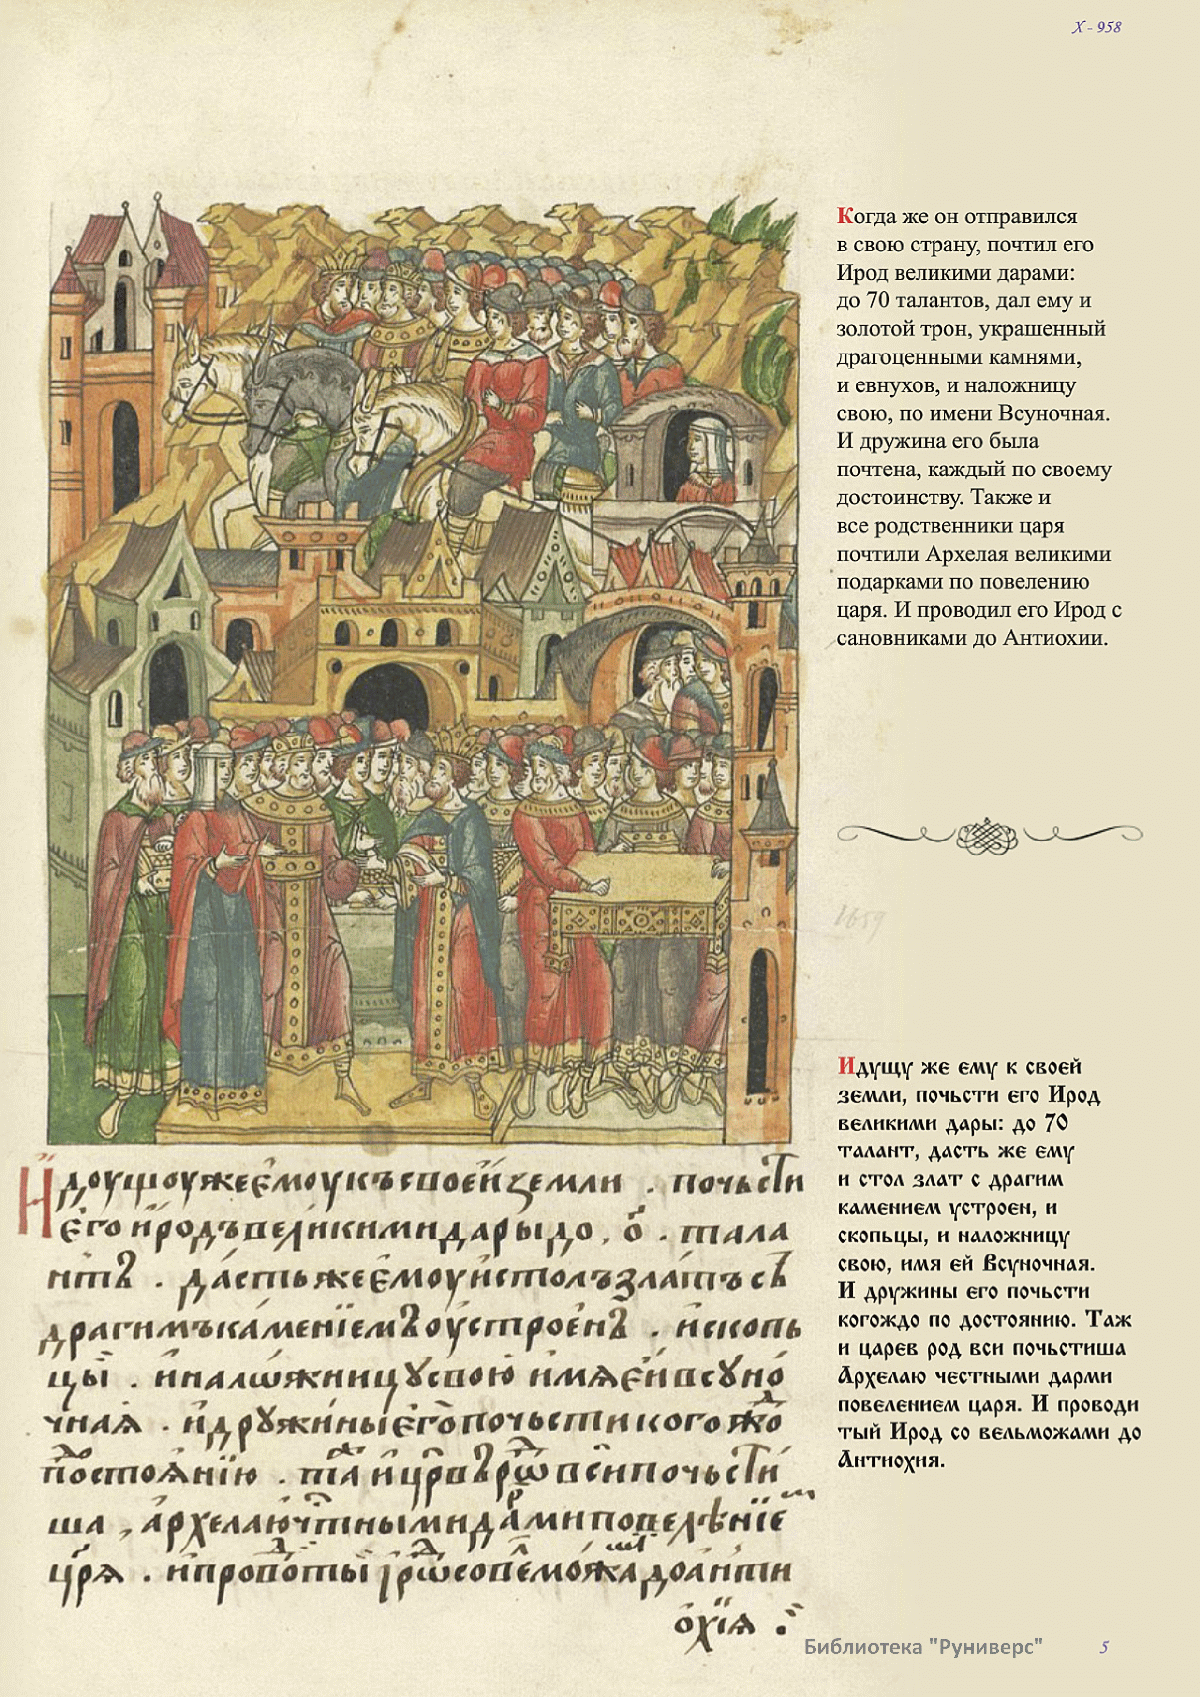 X - 958
Когда же он отправился
в свою страну, почтил его
Ирод великими дарами:
до 70 талантов, дал ему и
золотой трон, украшенный
драгоценными камнями,
и евнухов, и наложницу
свою, по имени Всуночная.
И дружина его была
почтена, каждый по своему
достоинству. Также и
все родственники царя
почтили Архелая великими
подарками по повелению
царя. И проводил его Ирод с
сановниками до Антиохии.
1659
Идущу же ему к своей
земли, почьсти его Ирод
великими дары: до 70
талант, дасть же ему
и стол злат с драгим
камением устроен, и
скопьцы, и наложницу
свою, имя ей Всуночная.
И дружины его почьсти
когождо по достоянию. Таж
и царев род вси почьстиша
Архелаю честными дарми
повелением царя. И проводи
тый Ирод со вельможами до
Антиохия.
Идоущоужеємоукъсвоейземли . почьсти
єгоиродъвеликимидарыдо . о҃ . тала
нтъ . дастьжеємоуистолъзлатъсъ
драгимъкаменїемъоустроєнъ . ископь
цы . иналѡжницусвою имѧєйвсуно
чнаѧ . идружиныєгопочьстикогожо
постоѧнїю . таицр҃върѡвсипочьсти
ша , архелаючтнымидамиповелѣнїе
цр҃ѧ . ипровотыирѡсовеможадоанти
охїѧ .
Библиотека "Руниверс"
5